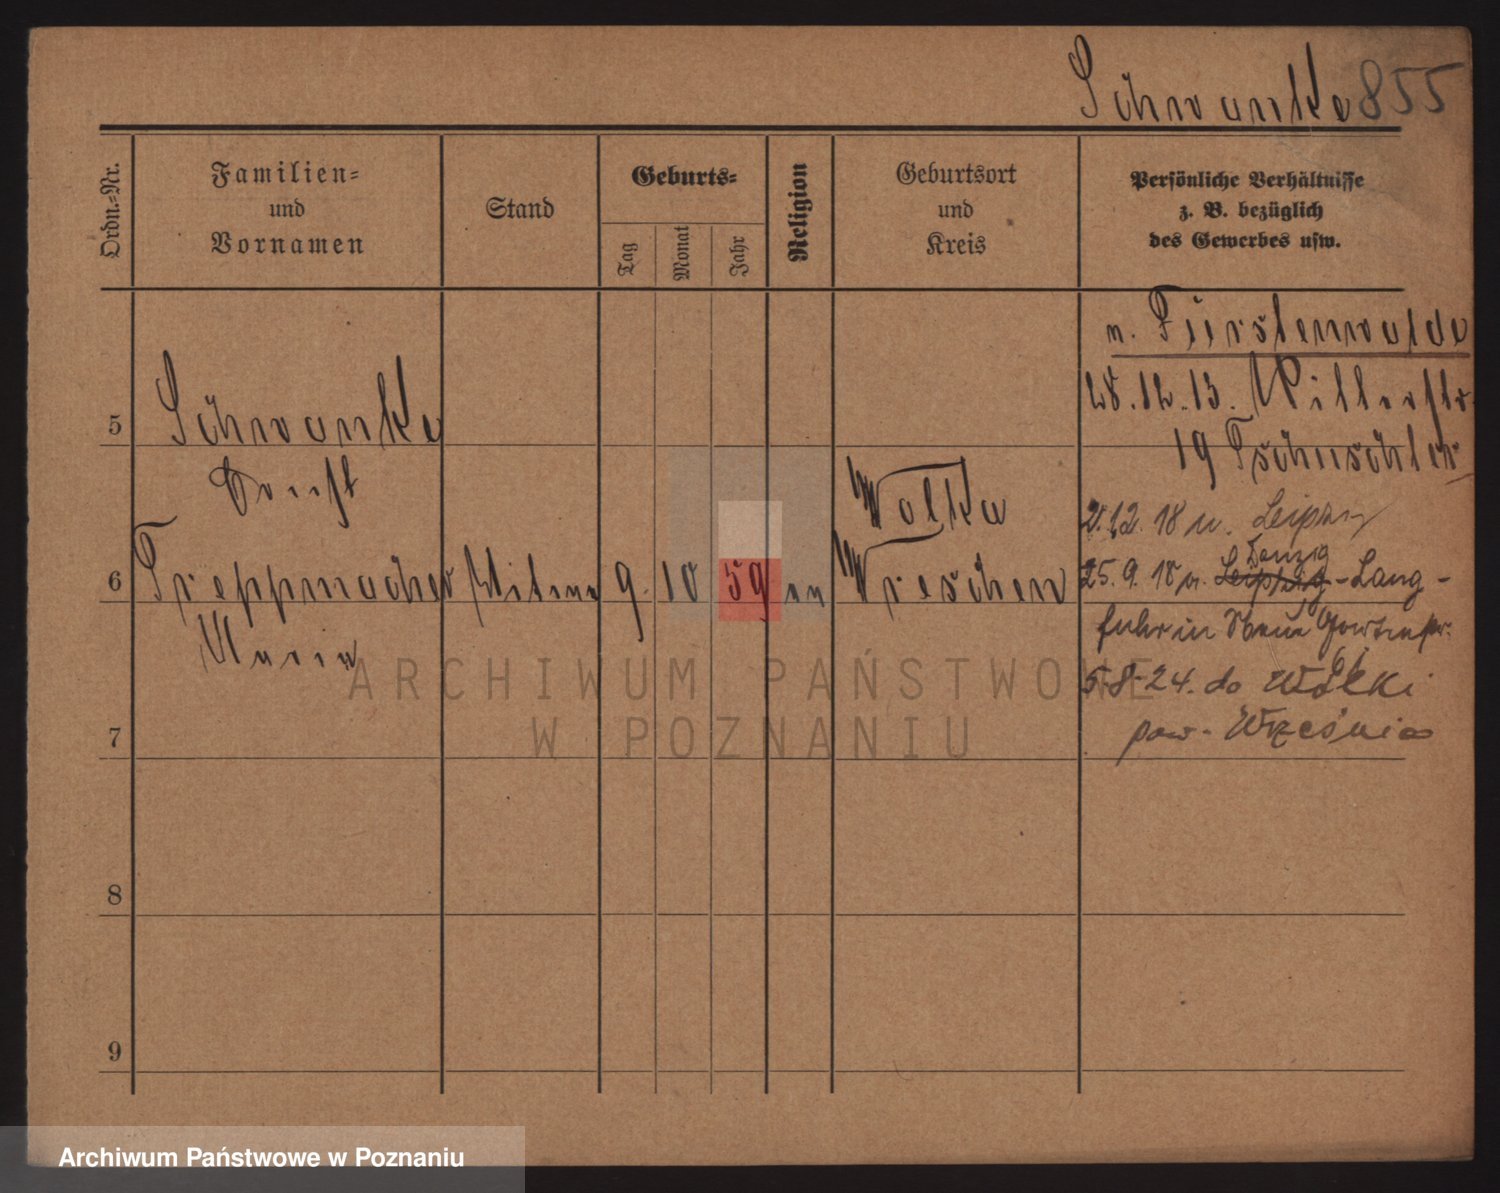 Schwanke 855
Ordn.-Nr.
Familien-
und
Vornamen
Stand
Geburts-
Tag
Monat
Jahr
Religion
Geburtsort
und
Kreis
Persönliche Verhältnisse
z. B. bezüglich
des Gewerbes usw.
n. Fürstenwalde
28.12.13.
19
5 Schwanke
Ernst
2.12.18 n. Leipzig
Wolka
Danzig
6 Treppmacher Witwe 9. 10 59 ev Wreschen 25.9.18 n. Leipzig - Lang-
fuhr in
Maria
5-8-24. do Wólki
pow. Września
7
8
9
ARCHIWUM PAŃSTWOWE
W POZNANIU
Archiwum Państwowe w Poznaniu